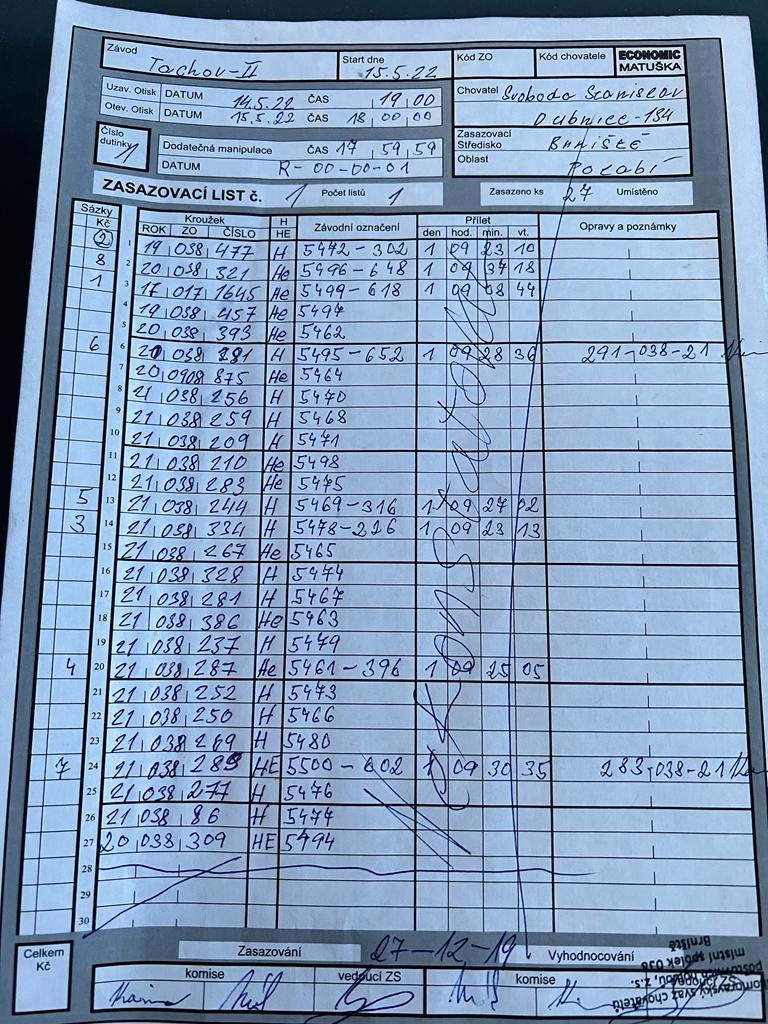 Závod Tachov-II Start dne 15.5.22 Kód ZO Kód chovatele ECONOMIC MATUŠKA
Uzav. Otisk DATUM 14.5.22 ČAS 19 00
Otev. Otisk DATUM 15.5.22 ČAS 18 00 00
Chovatel Svoboda Stanislav
Dubnice-134
Číslo dutinky 1
Dodatečná manipulace ČAS 17 59 59
DATUM R-00-00-01
Zasazovací Středisko Brniště
Oblast Polabí
ZASAZOVACÍ LIST č. 1 Počet listů 1 Zasazeno ks 27 Umístěno
Sázky Kč Kroužek ROK ZO ČÍSLO H HE Závodní označení Přílet den hod. min. vt. Opravy a poznámky
2 1 19 038 477 H 5472-302 1 09 23 10
8 2 20 038 321 He 5496-648 1 09 37 18
1 3 17 017 1645 He 5499-618 1 09 08 44
4 19 038 457 He 5497
5 20 038 393 He 5462
6 6 038 H 5495-652 1 09 28 36 291-038-21
7 20 0908 875 He 5464
8 21 038 256 H 5470
9 21 038 259 H 5468
10 21 038 209 H 5471
11 21 038 210 He 5498
12 21 038 283 He 5475
5 13 21 038 244 H 5469-316 1 09 27 02
3 14 21 038 334 H 5478-226 1 09 23 13
15 21 038 267 He 5465
16 21 038 328 H 5474
17 21 038 281 H 5467
18 21 038 386 He 5463
19 21 038 237 H 5479
4 20 21 038 287 He 5461-396 1 09 25 05
21 21 038 252 H 5473
22 21 038 250 H 5466
23 21 038 269 H 5480
7 24 21 038 HE 5500-602 1 09 30 35 283-038-21
25 21 038 277 H 5476
26 21 038 86 H 5477
27 20 038 309 HE 5494
28
29
30
Celkem Kč Zasazování 27-12-19 Vyhodnocování
komise vedoucí ZS komise
místní spolek 038
Brniště